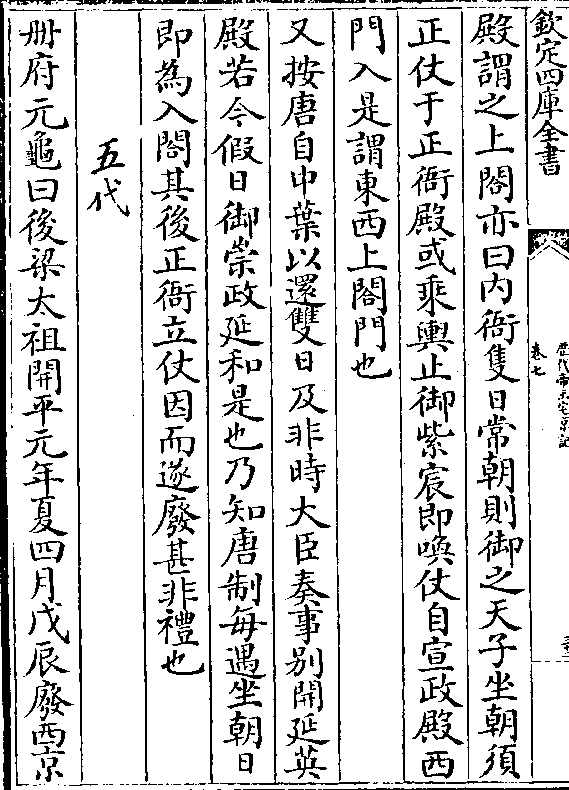 欽定四庫全書
歷代帝王宅京記
卷七
殿謂之上閤亦曰内衙隻日常朝則御之天子坐朝須
正仗于正衙殿或乘輿止御紫宸即喚仗自宣政殿西
門入是謂東西上閤門也
又按唐自中葉以還雙日及非時大臣奏事别開延英
殿若今假日御崇政延和是也乃知唐制每遇坐朝日
即為入閤其後正衙立仗因而遂廢甚非禮也
五代
册府元龜曰後梁太祖開平元年夏四月戊辰廢西京